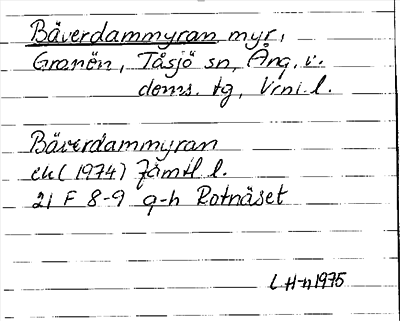 Bäverdammyran myr,
Granön, Tåsjö sn, Ång. v.
doms. tg, V:ni. l.
Bäverdammyran
ek (1974) Jämtl l.
21 F 8-9 g-h Rotnäset
L H-n 1975